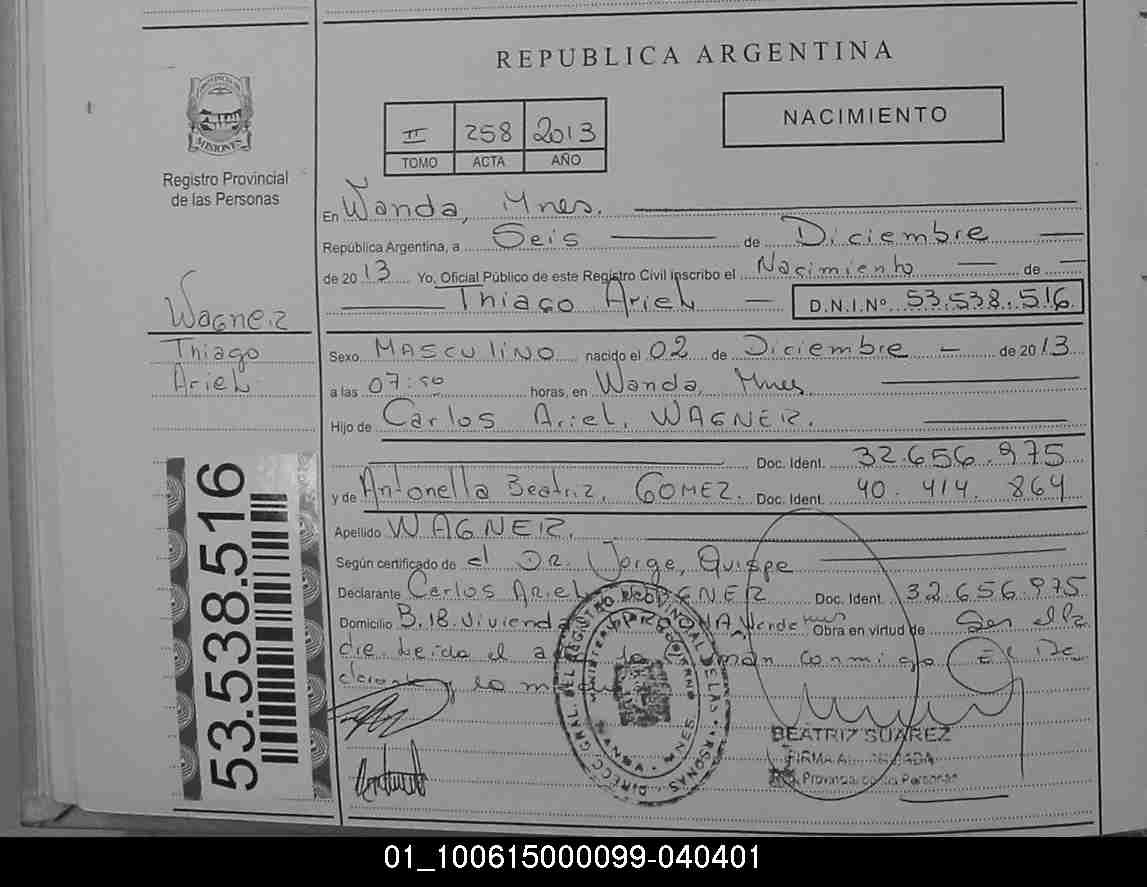 REPUBLICA ARGENTINA
PROVINCIA DE
MISIONES
Registro Provincial
de las Personas
II 258 2013
TOMO ACTA AÑO
NACIMIENTO
En Wanda, Mnes.
República Argentina, a Seis de Diciembre
de 2013 Yo, Oficial Público de este Registro Civil inscribo el Nacimiento de
Thiago Ariel D.N.I.Nº 53.538.516
Wagner
Thiago
Ariel
Sexo MASCULINO nacido el 02 de Diciembre de 2013
a las 07:50 horas, en Wanda, Mnes
Hijo de Carlos Ariel, WAGNER.
Doc. Ident. 32.656.975
y de Antonella Beatriz, GOMEZ. Doc. Ident. 40.414.864
Apellido WAGNER.
Según certificado de el DR. Jorge, Quispe
Declarante Carlos Ariel WAGNER Doc. Ident. 32656975
Domicilio B. 18 Vivienda Verde Obra en virtud de Ser el Pa
dre Leida el conmigo El De
clarante y la
53.538.516
DIRECC. GRAL. DEL REGISTRO PROVINCIAL DE LAS PERSONAS
MISIONES
BEATRIZ SUAREZ
FIRMA AUTORIZADA
Provincial de las Personas
01_100615000099-040401